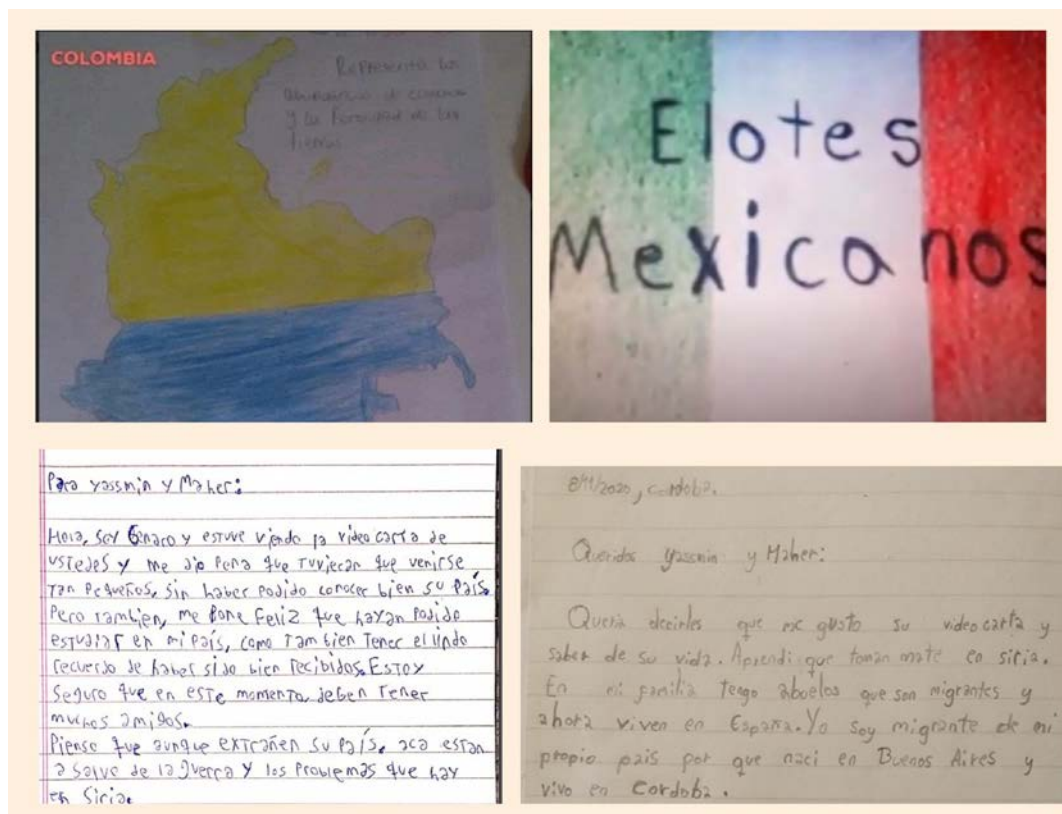 COLOMBIA
Representa la
abundancia de
y la Fertilidad de las
tierras
Elotes
Mexicanos
Para yassmin y Maher:
Hola, soy Genaro y estuve viendo la video carta de
ustedes y me dio pena que tuviecan que venirse
tan pequeños, sin haber podido conocer bien su país.
Pero tambien, me pone Feliz que hayan podido
estudiar en mi país, como tambien tener el lindo
recuerdo de haber sido bien recibidos. Estoy
seguro que en este momento, deben tener
muchos amigos.
Pienso que aunque extrañen su país, aca estan
a salvo de la guerra y los problemas que hay
en Siria.
8/11/2020, cordoba.
Queridos yassmin y Maher:
Queria decirles que me gusto su video carta y
saber de su vida. Aprendi que toman mate en siria.
En mi familia tengo abuelos que son migrantes y
ahora viven en España. Yo soy migrante de mi
propio pais por que naci en Buenos Aires y
vivo en Cordoba.